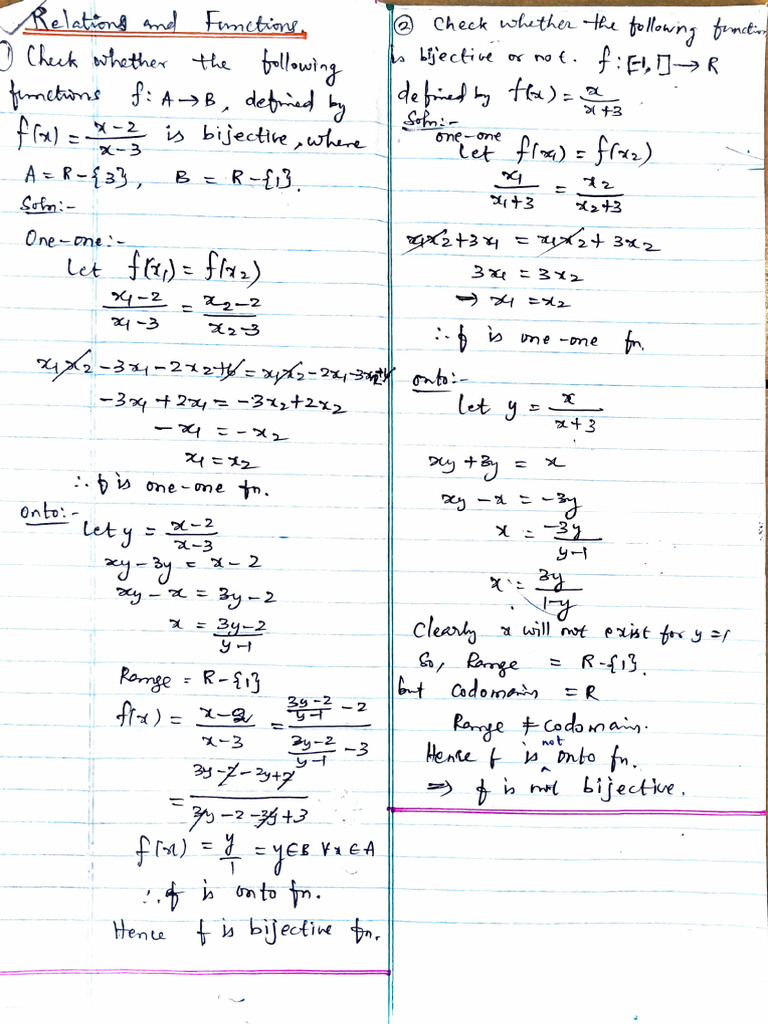 Relations and Functions.
① Check whether the following
functions f: A→B, defined by
f(x) = x-2/x-3 is bijective, where
A = R-{3}, B = R-{1}.
Soln:-
One-one:-
Let f(x₁) = f(x₂)
x₁-2/x₁-3 = x₂-2/x₂-3
x₁x₂ -3x₁-2x₂+6 = x₁x₂-2x₁-3x₂+6
-3x₁+2x₁ = -3x₂+2x₂
-x₁ = -x₂
x₁=x₂
∴ f is one-one fn.
onto:-
Let y = x-2/x-3
xy-3y = x-2
xy-x = 3y-2
x = 3y-2/y-1
Range = R-{1}
f(x) = x-2/x-3 = (3y-2/y-1 -2)/(3y-2/y-1 -3)
= 3y-2-2y+2/3y-2-3y+3
f(x) = y/1 = y∈B ∀x∈A
∴ f is onto fn.
Hence f is bijective fn.
② Check whether the following function
is bijective or not. f: [-1,1]→R
defined by f(x) = x/x+3
Soln:-
one-one
Let f(x₁) = f(x₂)
x₁/x₁+3 = x₂/x₂+3
x₁x₂+3x₁ = x₁x₂+3x₂
3x₁ = 3x₂
→ x₁=x₂
∴ f is one-one fn.
onto:-
Let y = x/x+3
xy+3y = x
xy-x = -3y
x = -3y/y-1
x = 3y/1-y
Clearly x will not exist for y=1
So, Range = R-{1}.
but Codomain = R
Range ≠ codomain.
Hence f is not onto fn.
⇒ f is not bijective.